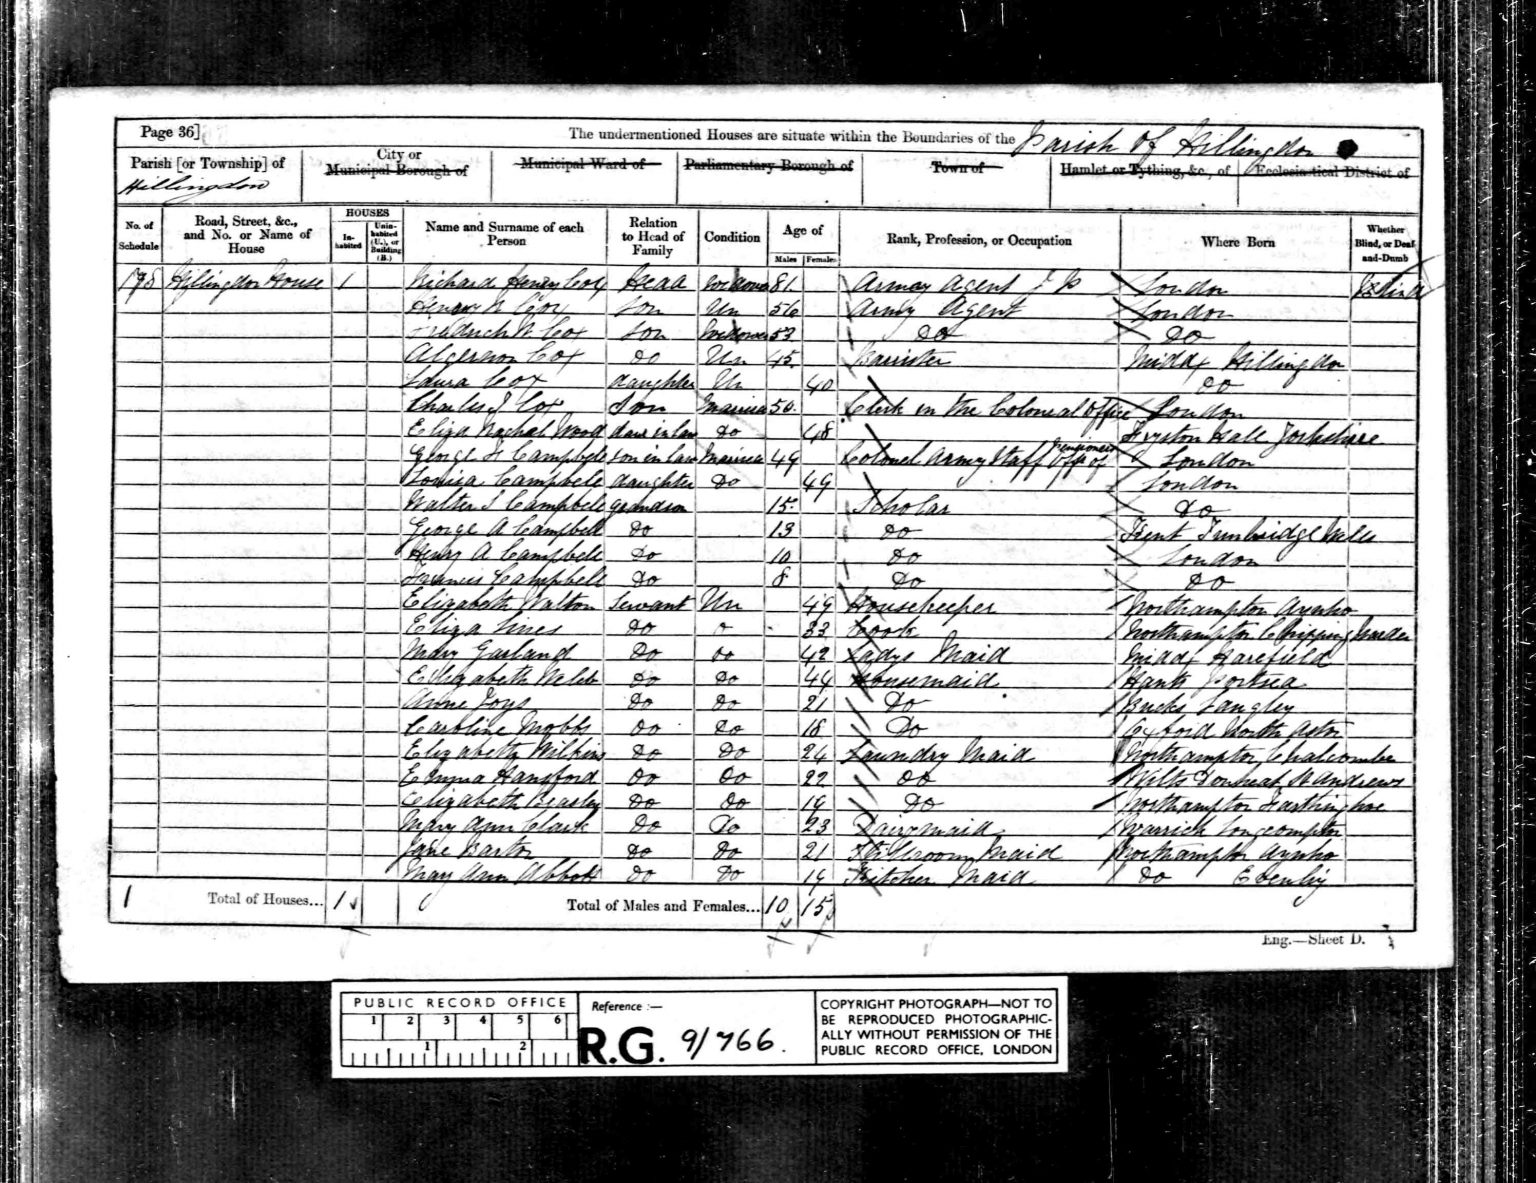 Page 36]
The undermentioned Houses are situate within the Boundaries of the Parish of Hillingdon
Parish [or Township] of
City or
Municipal Borough of
Municipal Ward of
Parliamentary Borough of
Town of
Hamlet or Tything, &c., of
Ecclesiastical District of
Hillingdon
No. of Schedule
Road, Street, &c., and No. or Name of House
HOUSES
Inhabited
Uninhabited (U.), or Building (B.)
Name and Surname of each Person
Relation to Head of Family
Condition
Age of
Males
Females
Rank, Profession, or Occupation
Where Born
Whether Blind, or Deaf and-Dumb
178 Hillingdon House 1 Richard Henry Cox Head Widower 81 Army Agent J P London Blind
Henry R Cox Son Un 56 Army Agent London
Fredrick W Cox Son Widower 53 Do Do
Algernon Cox Do Un 45 Barrister Middx Hillingdon
Laura Cox daughter Un 40 Do
Charles J Cox Son Married 50 Clerk in the Colonial Office London
Eliza Rachel Wood daur in law Do 48 Fryston Hall Yorkshire
George H Campbell son in law Married 49 Colonel Army Staff Offr of Pensioners London
Louisa Campbell daughter Do 49 London
Walter S Campbell grandson 15 Scholar Do
George A Campbell Do 13 Do Kent Tunbridge Wells
Henry A Campbell Do 10 Do London
Francis Campbell Do 8 Do Do
Elizabeth Walton Servant Un 49 Housekeeper Northampton Aynho
Eliza Hines Do o 33 Cook Northampton Chipping Warden
Mary Garland Do Do 42 Ladys Maid Middx Harefield
Elizabeth Webb Do Do 44 Housemaid Hants Portsea
Anne Joys Do Do 21 Do Bucks Langley
Caroline Mobbs Do Do 18 Do Oxford North Aston
Elizabeth Wilkins Do Do 24 Laundry Maid Northampton Chalcombe
Emma Hansford Do Do 22 Do Wilts Donheat St Andrews
Elizabeth Beasley Do Do 19 Do Northampton Farthinghoe
Mary Ann Clark Do Do 23 Dairymaid Warrick Longcompton
Jane Barton Do Do 21 Stillroom Maid Northampton Aynho
Mary Ann Abbott Do Do 19 Kitchen Maid Do Evenley
1 Total of Houses... 1 Total of Males and Females... 10 15
Eng.—Sheet D.
PUBLIC RECORD OFFICE
1 2 3 4 5 6
1 2
Reference :—
R.G. 9/766.
COPYRIGHT PHOTOGRAPH—NOT TO
BE REPRODUCED PHOTOGRAPHIC-
ALLY WITHOUT PERMISSION OF THE
PUBLIC RECORD OFFICE, LONDON